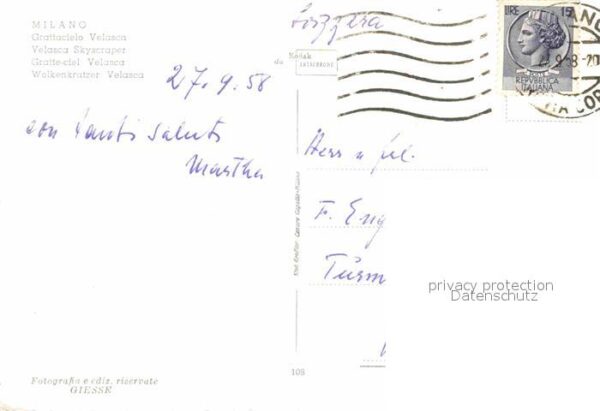 MILANO
Grattacielo Velasca
Velasca Skyscraper
Gratte-ciel Velanca
Wolkenkratzer Velasca
27.9.58
con tanti saluti
Martha
Svizzera
da Kodak
EKTACHROME
LIRE 15
REPVBBLICA
ITALIANA
Herr u
F. Eng
Türm
privacy protection
Datenschutz
108
Fotografia e ediz. riservate
GIESSE